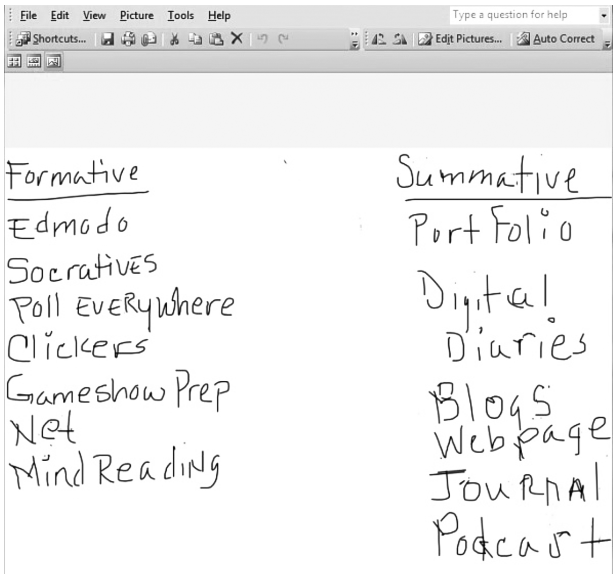 File Edit View Picture Tools Help
Type a question for help
Shortcuts... Edit Pictures... Auto Correct
Formative
Edmodo
Socratives
Poll EVERywhere
Clickers
Gameshow Prep
Net
Mind ReadiNg
Summative
Portfolio
Digital
Diaries
Blogs
Webpage
JouRnAl
Podcast